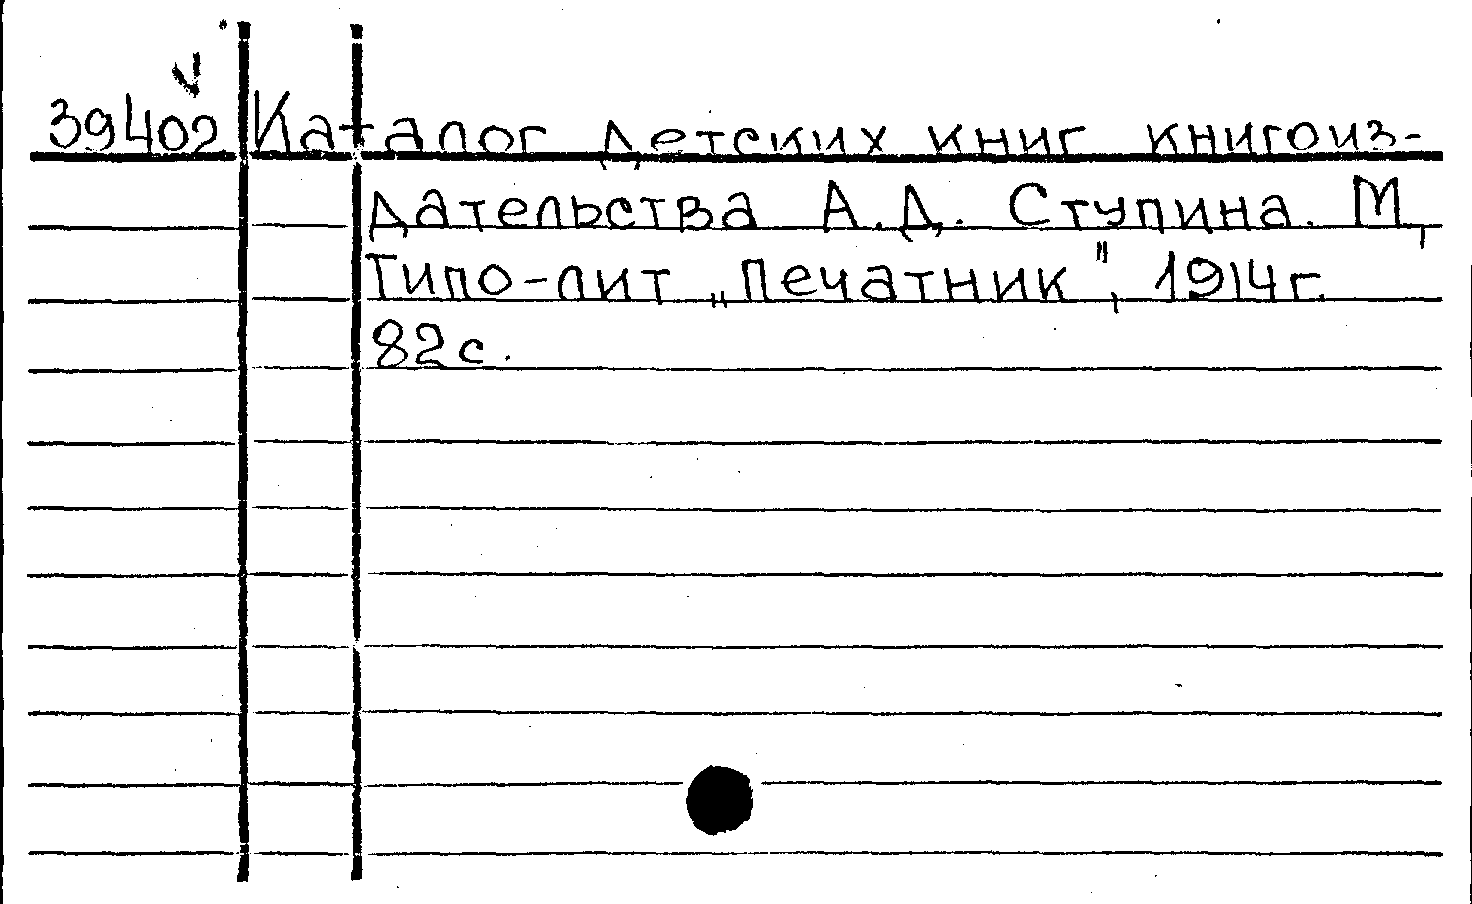 39402 Каталог детских книг книгоиз-
дательства А.Д. Ступина. М,
Типо-лит „Печатник", 1914г.
82с.